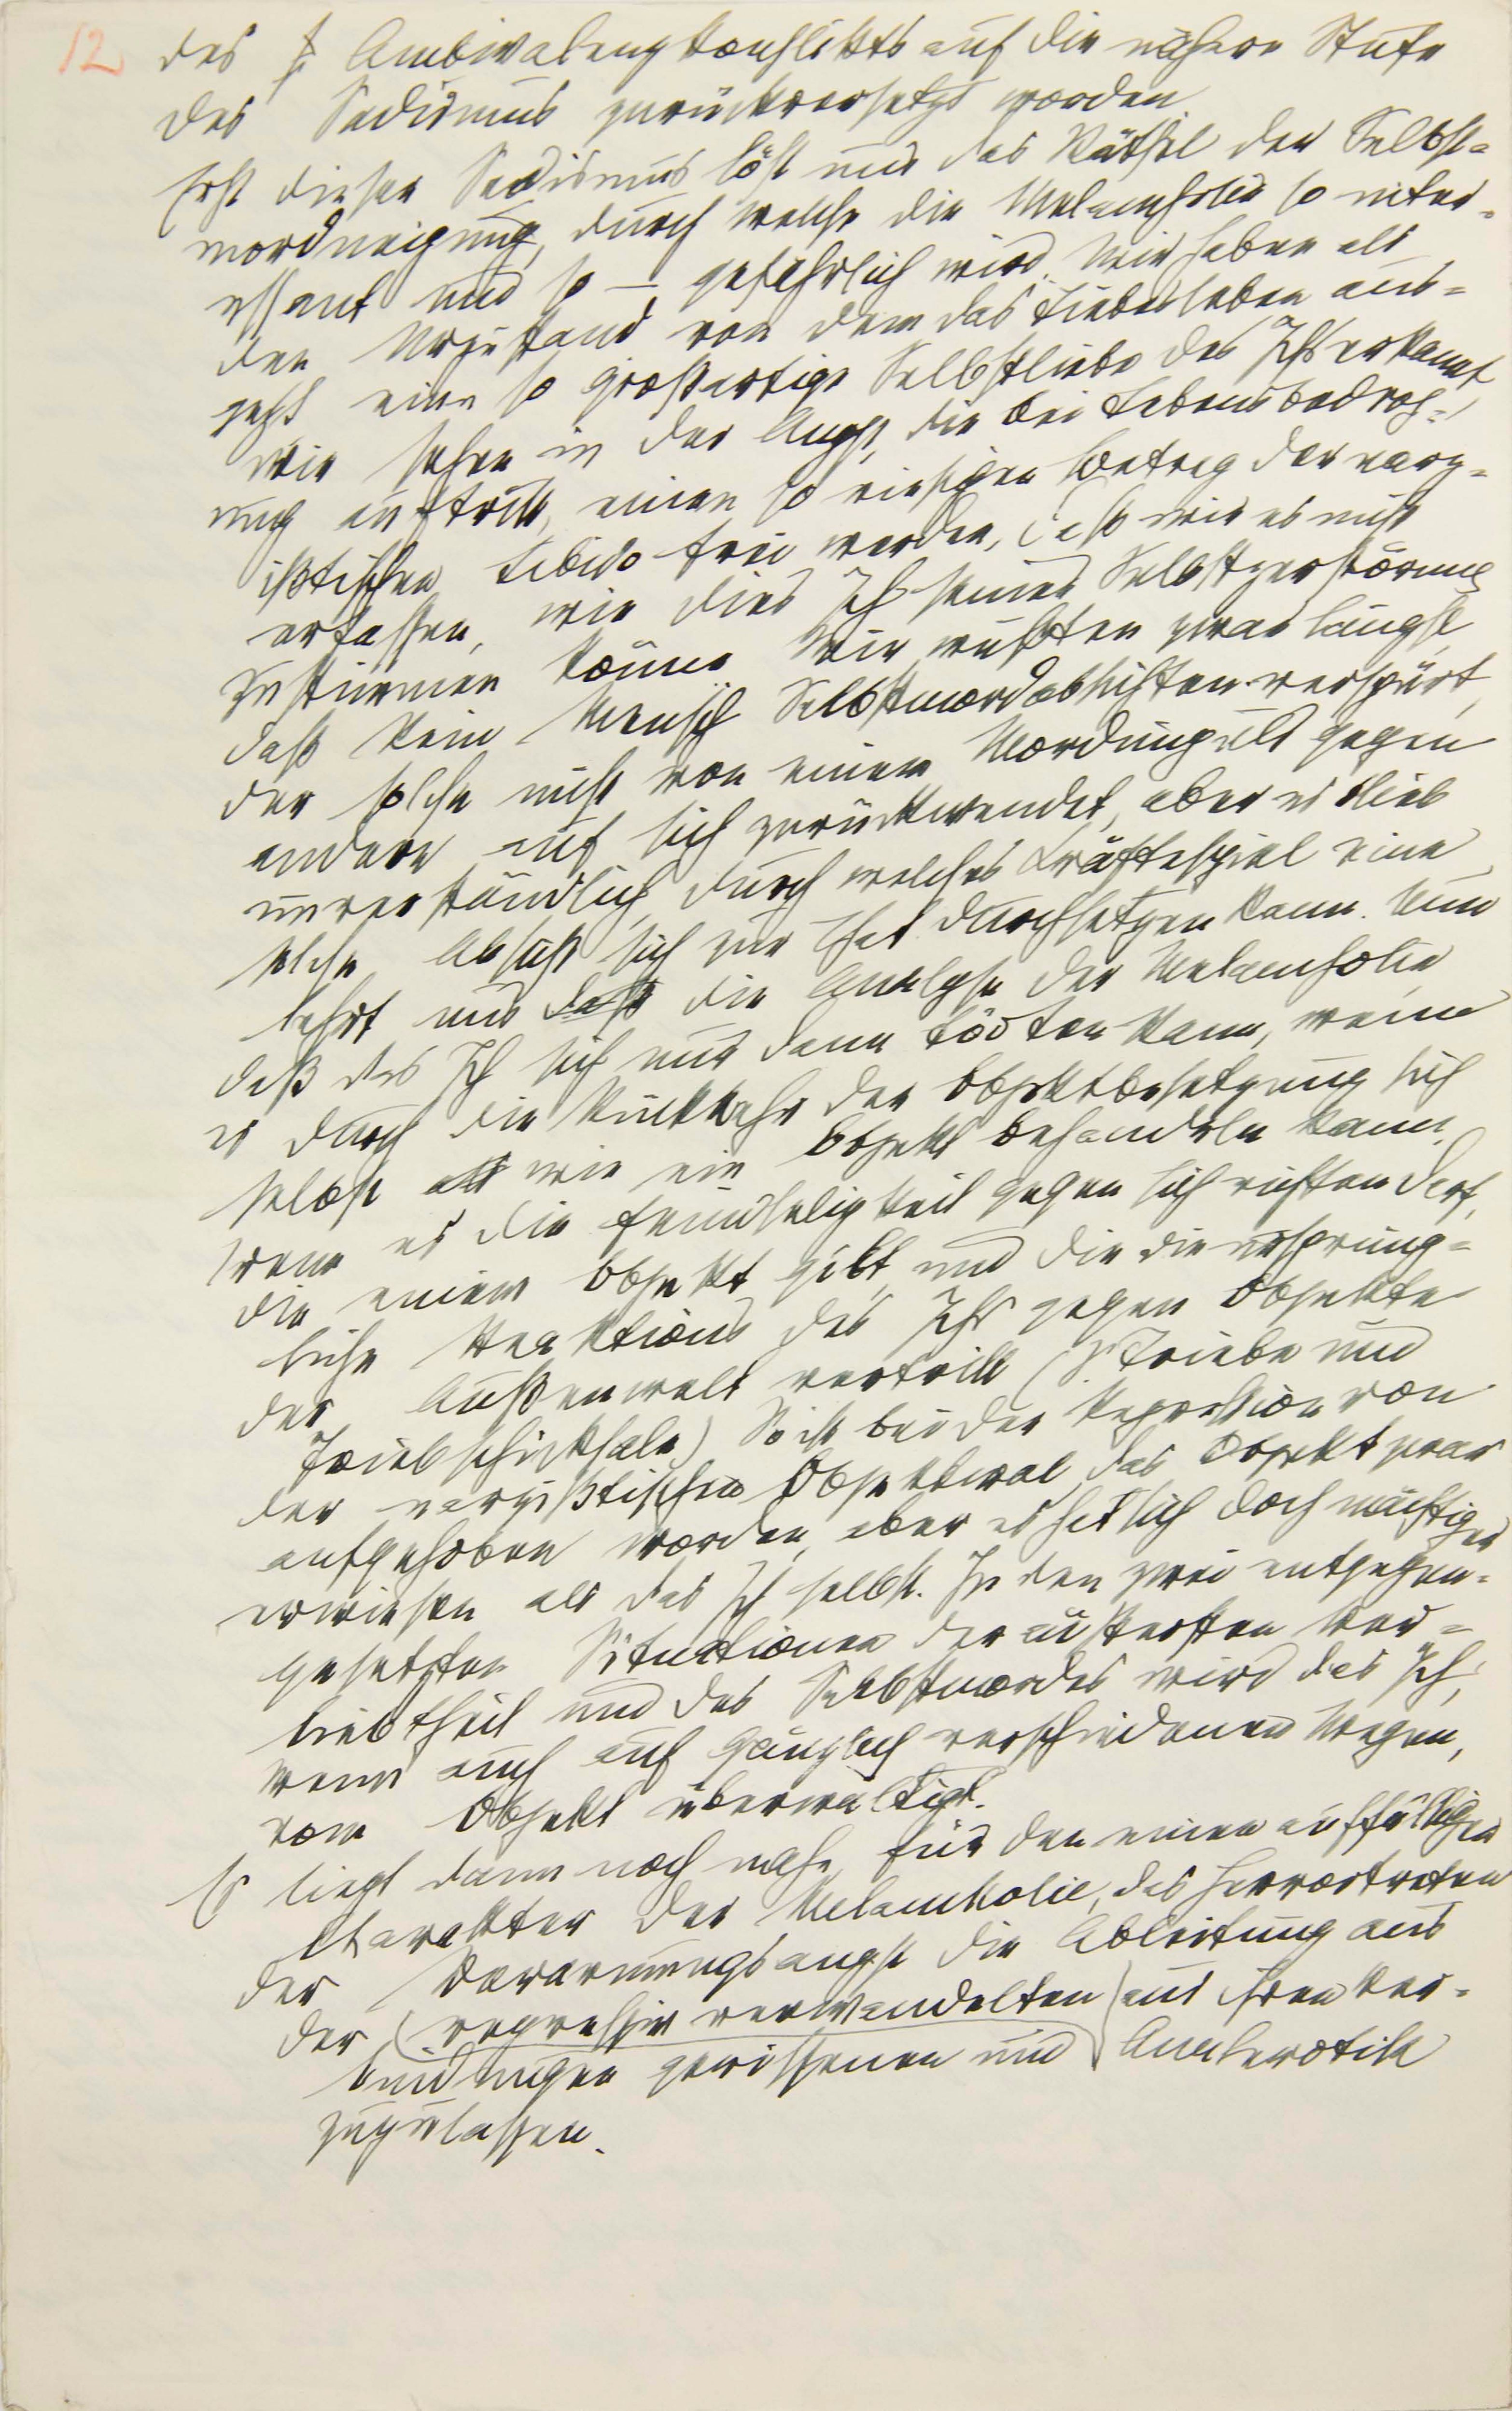 12
des Ambivalenzkonflikts auf die nähere Stufe
des Sadismus zurückversetzt worden.
Erst dieser Sadismus löst uns das Rätsel der Selbst-
mordneigung, durch welche die Melancholie so inter-
essant und so – gefährlich wird. Wir haben als
den Urzustand von dem das Liebesleben aus-
geht eine so großartige Selbstliebe des Ichs erkannt,
wir sehen in der Angst, die bei Lebensbedroh-
ung auftritt, einen so riesigen Betrag der narz-
ißtischen Libido frei werden, daß wir es nicht
erfassen, wie dies Ich seiner Selbstzerstörung
zustimmen könne. Wir wußten zwar längst,
daß kein Mensch Selbstmordabsichten verspürt,
der solche nicht von einem Mordimpuls gegen
andere auf sich zurückwendet, aber es blieb
unverständlich, durch welches Kräftespiel eine
solche Absicht sich zur That durchsetzen kann. Nun
lehrt uns daß die Analyse der Melancholie,
daß das Ich sich nur dann tödten kann, wenn
es durch die Rückkehr der Objektbesetzung sich
selbst als wie ein Objekt behandeln kann,
wenn es die Feindseligkeit gegen sich richten darf,
die einem Objekt gilt und die die ursprüng-
liche Reaktion des Ichs gegen Objekte
der Außenwelt vertritt (S. Triebe und
Triebschicksale) So ist bei der Regression von
der narzißtischen Objektwal das Objekt zwar
aufgehoben worden, aber es hat sich doch mächtiger
erwiesen als das Ich selbst. In den zwei entgegen-
gesetzten Situationen der äußersten Ver-
liebtheit und des Selbstmordes wird das Ich,
wenn auch auf gänzlich verschiedenen Wegen,
vom Objekt überwältigt.
Es liegt dann noch nahe, für den einen auffälligen
Charakter der Melancholie, das Hervortreten
der Verarmungsangst die Ableitung aus
der (regressiv verwandelten) aus ihren Ver-
bindungen gerissenen und Analerotik
zuzulassen.